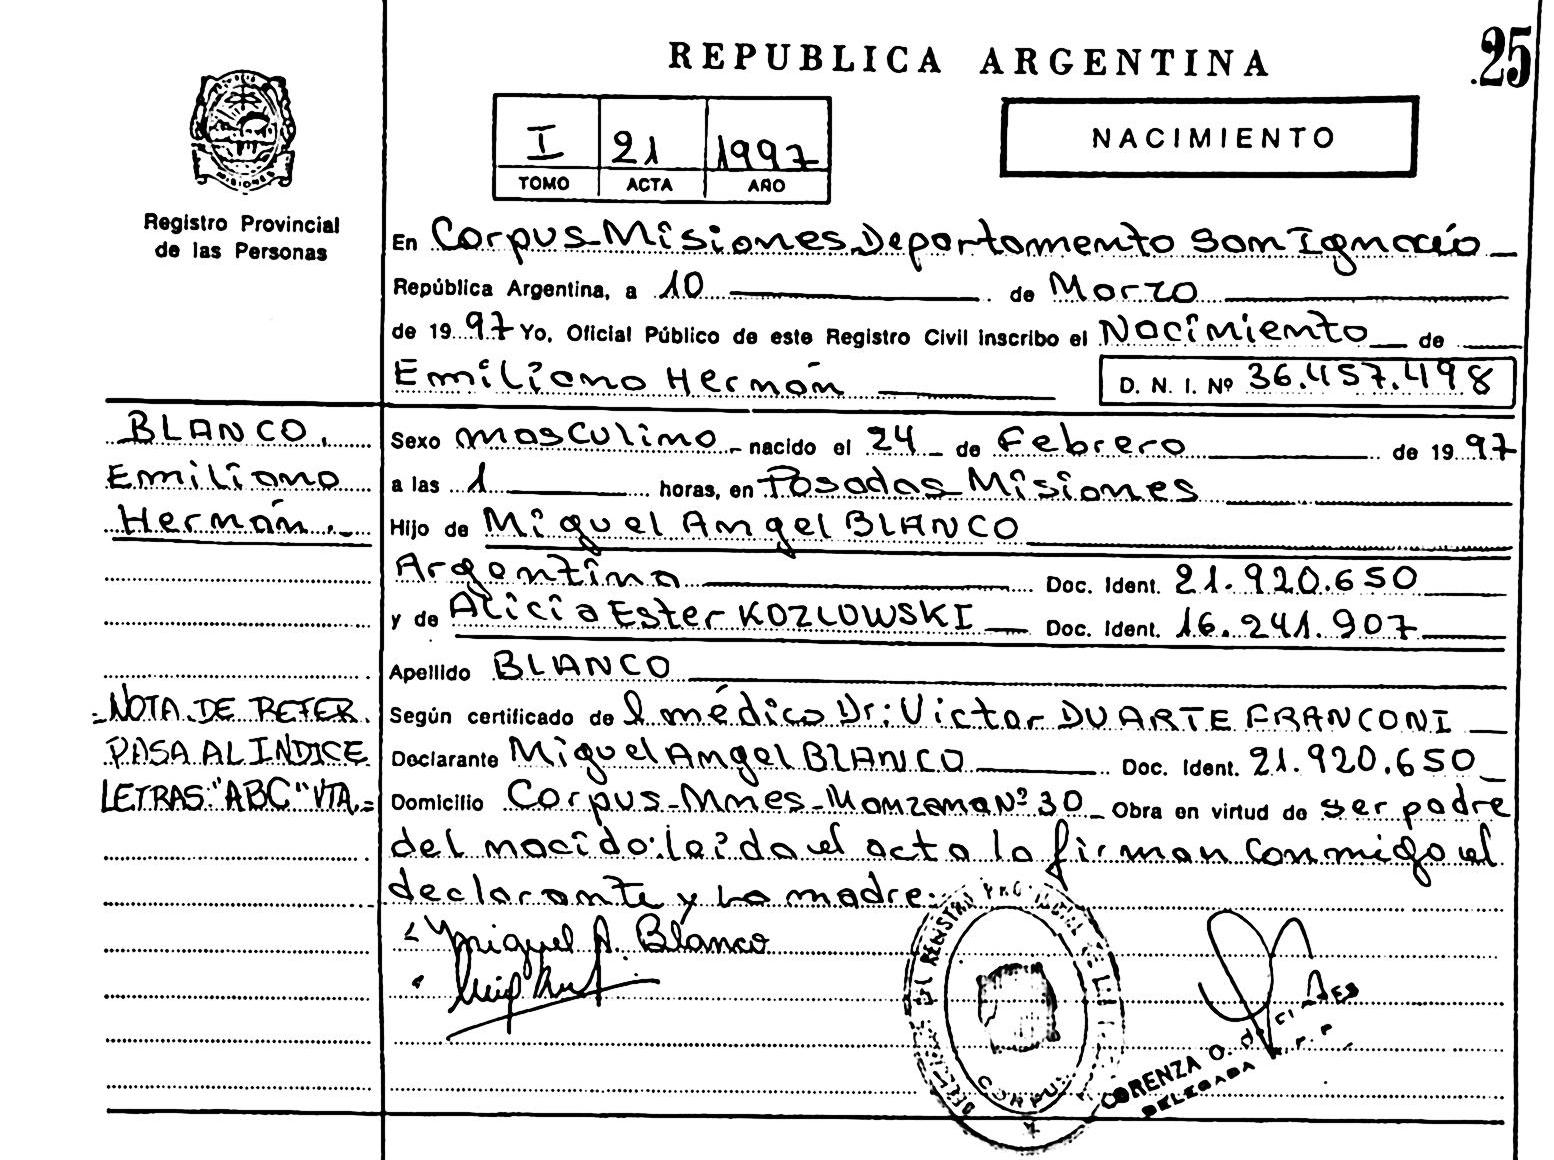 REPUBLICA ARGENTINA
25
I 21 1997
TOMO ACTA AÑO
NACIMIENTO
MISIONES
Registro Provincial
de las Personas
En Corpus-Misiones-Departamento San Ignacio
República Argentina, a 10 de Marzo
de 1997 Yo, Oficial Público de este Registro Civil inscribo el Nacimiento de
Emiliano Hernán D. N. I. Nº 36.457.498
BLANCO.
Emiliano
Hernán.-
Sexo masculino nacido el 24 de Febrero de 1997
a las 1 horas, en Posadas-Misiones
Hijo de Miguel Angel BLANCO
Argentino Doc. Ident. 21.920.650
y de Alicia Ester KOZLOWSKI Doc. Ident. 16.241.907
Apellido BLANCO
NOTA DE REFER.
PASA AL INDICE
LETRAS "ABC" VTA.=
Según certificado de l médico Dr: Victor DUARTE FRANCONI
Declarante Miguel Angel BLANCO Doc. Ident. 21.920.650
Domicilio Corpus-Mnes-Manzana Nº 30 Obra en virtud de ser padre
del nacido: leída el acta la firman conmigo el
declarante y la madre.
Miguel A. Blanco
REGISTRO PROVINCIAL DE
CORPUS
LORENZA O. de
DELEGADA R. P. P.